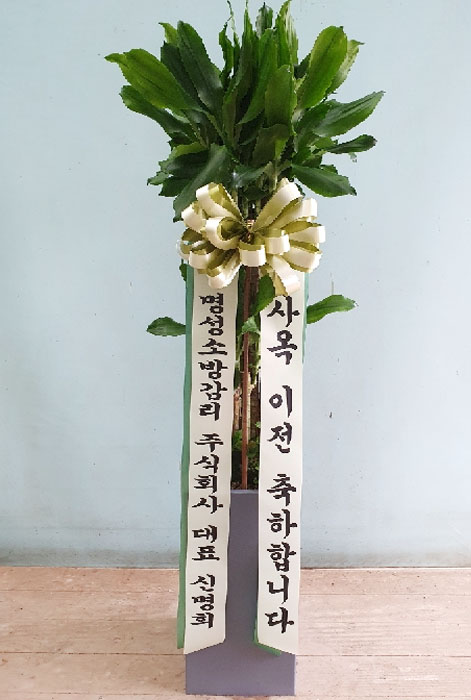 명성소방감리 주식회사 대표 신명희
사옥 이전 축하합니다